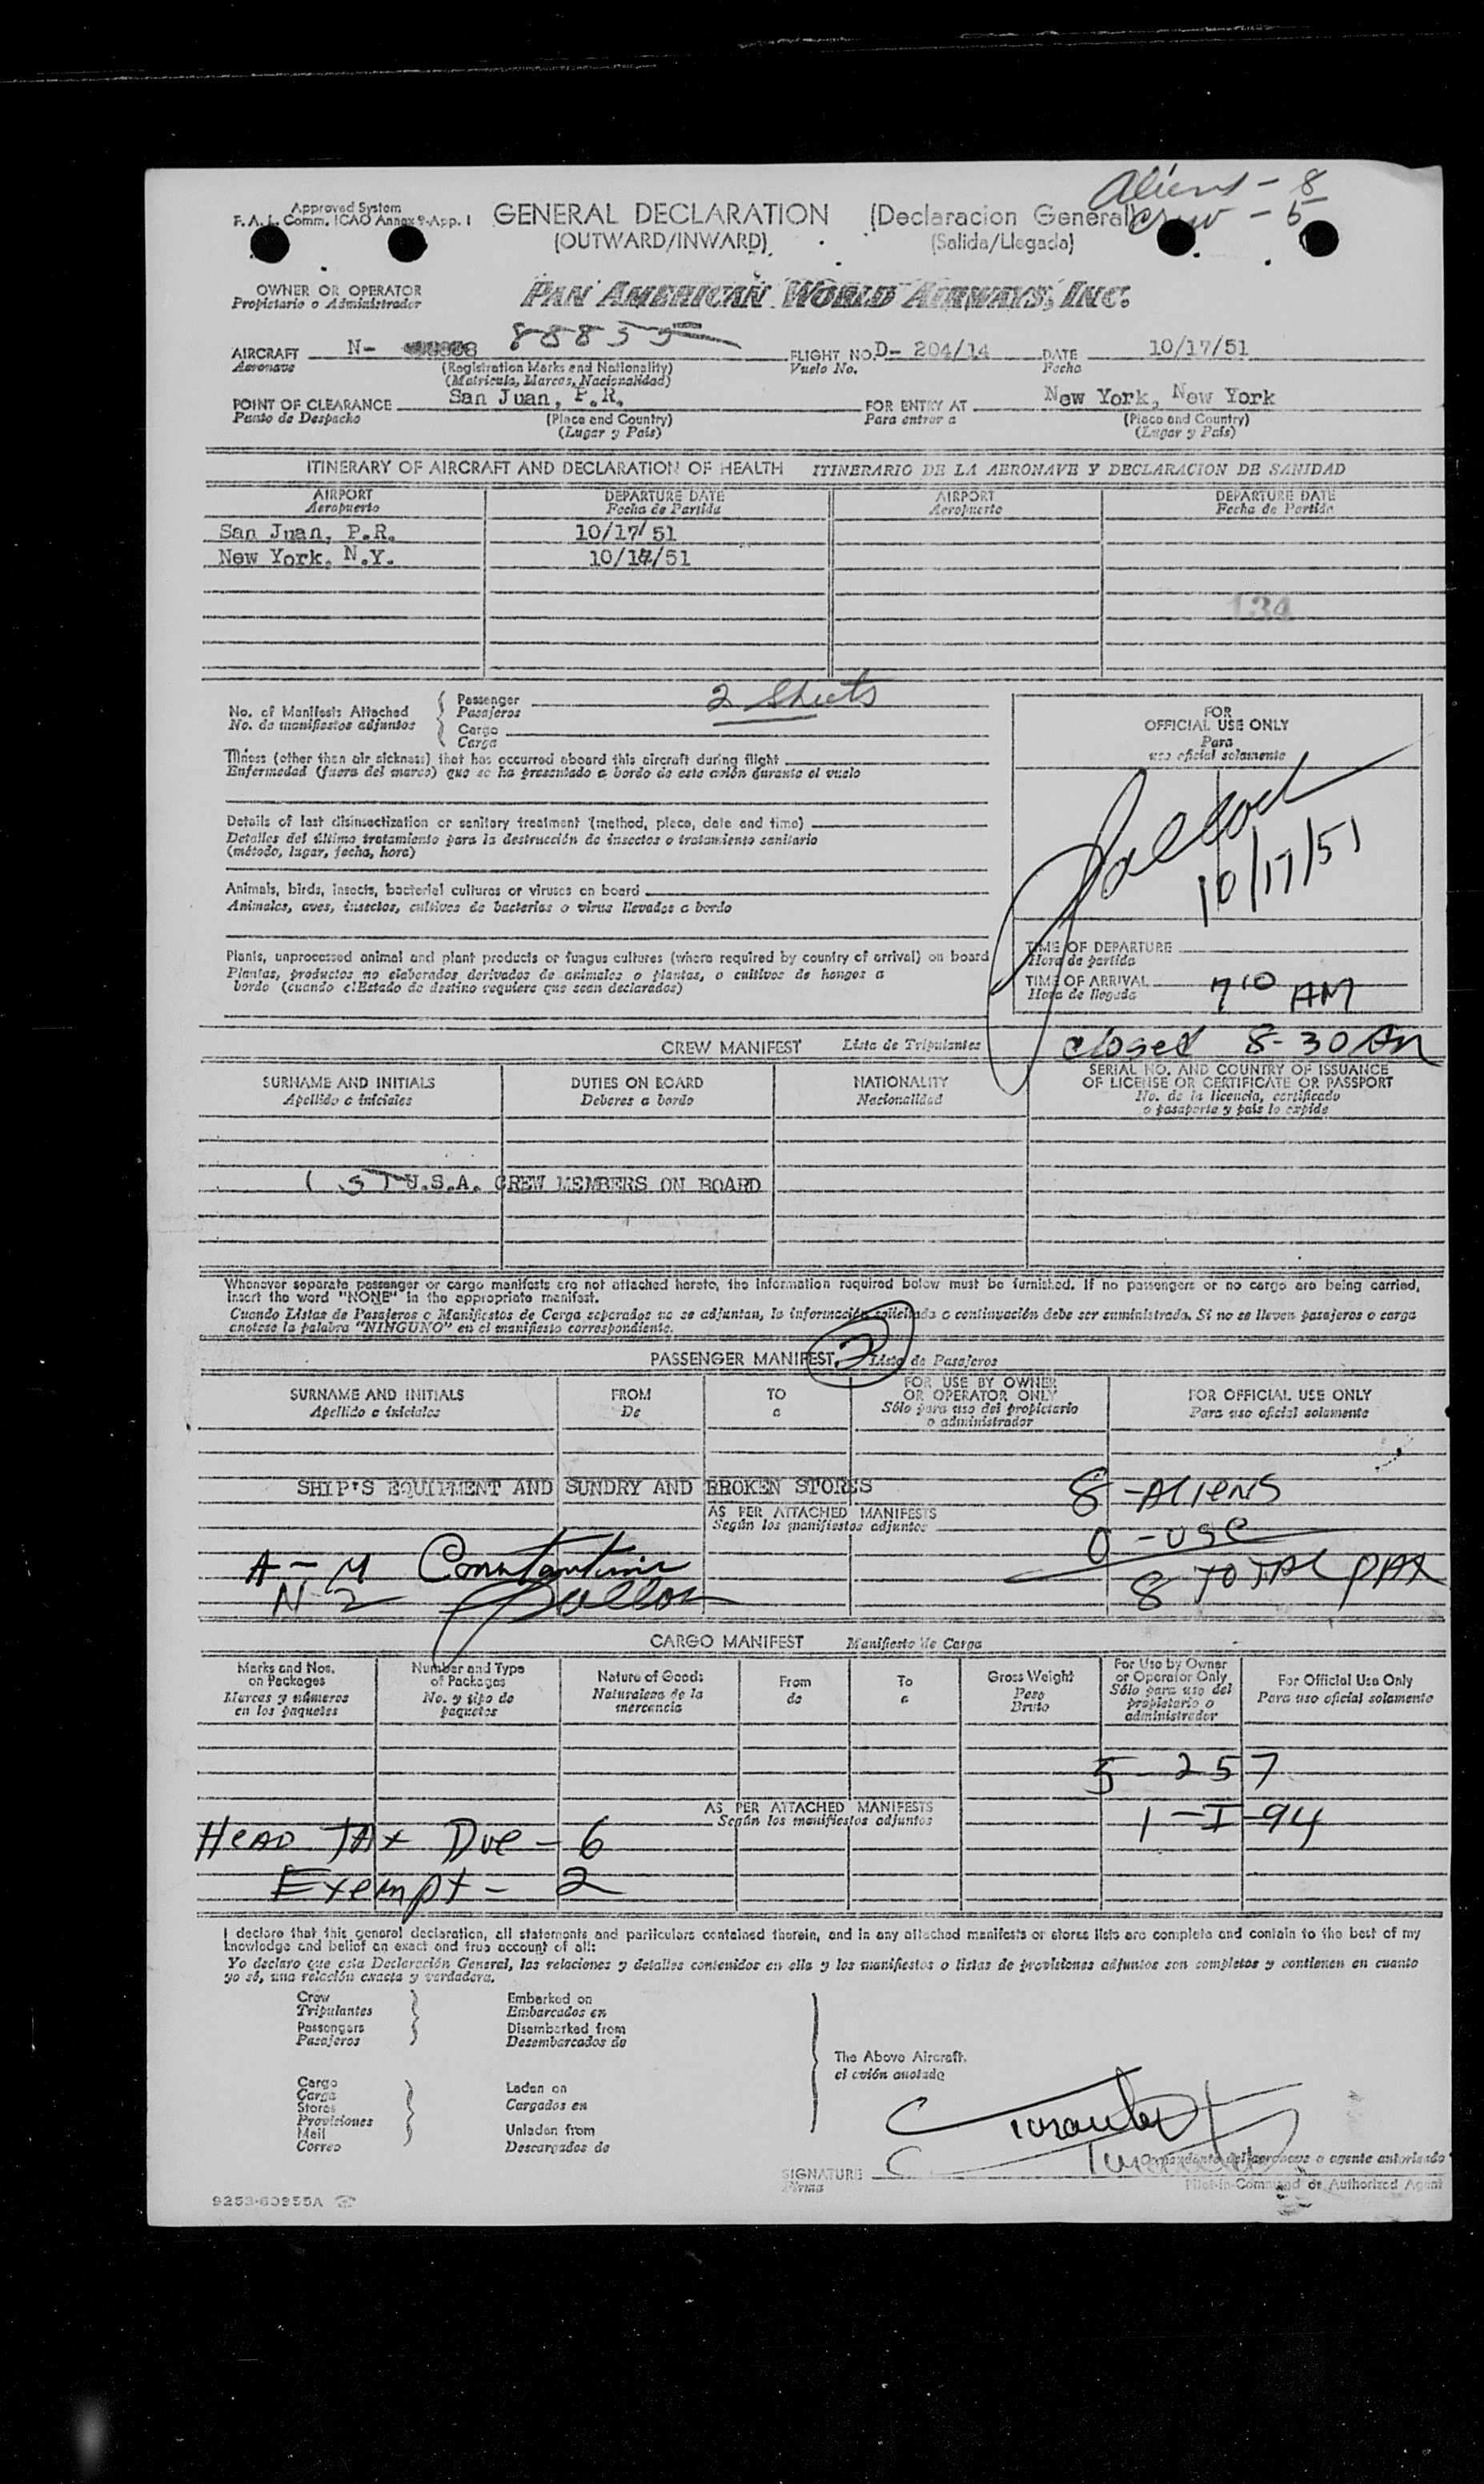 Aliens - 8
Crew - 5
Approved System
F. A. L. Comm. ICAO Annex 9-App. I
GENERAL DECLARATION (Declaracion General)
(OUTWARD/INWARD) (Salida/Llegada)
OWNER OR OPERATOR
Propietario o Administrador
PAN AMERICAN WORLD AIRWAYS, INC.
AIRCRAFT N- 88855 FLIGHT NO. D- 204/14 DATE 10/17/51
Aeronave (Registration Marks and Nationality) Vuelo No. Fecha
(Matricula, Marcas, Nacionalidad)
POINT OF CLEARANCE San Juan, P.R. FOR ENTRY AT New York, New York
Punto de Despacho (Place and Country) Para entrar a (Place and Country)
(Lugar y País) (Lugar y País)
ITINERARY OF AIRCRAFT AND DECLARATION OF HEALTH ITINERARIO DE LA AERONAVE Y DECLARACION DE SANIDAD
AIRPORT DEPARTURE DATE AIRPORT DEPARTURE DATE
Aeropuerto Fecha de Partida Aeropuerto Fecha de Partida
San Juan, P.R. 10/17/51
New York, N.Y. 10/17/51
134
No. of Manifests Attached Passenger 2 sheets
No. de manifiestos adjuntos Pasajeros
Cargo
Carga
Illness (other than air sickness) that has occurred aboard this aircraft during flight
Enfermedad (fuera del mareo) que se ha presentado a bordo de este avión durante el vuelo
Details of last disinsectization or sanitary treatment (method, place, date and time)
Detalles del último tratamiento para la destrucción de insectos o tratamiento sanitario
(método, lugar, fecha, hora)
Animals, birds, insects, bacterial cultures or viruses on board
Animales, aves, insectos, cultivos de bacterias o virus llevados a bordo
Plants, unprocessed animal and plant products or fungus cultures (where required by country of arrival) on board
Plantas, productos no elaborados derivados de animales o plantas, o cultivos de hongos a
bordo (cuando el Estado de destino requiere que sean declarados)
FOR
OFFICIAL USE ONLY
Para
uso oficial solamente
10/17/51
TIME OF DEPARTURE
Hora de partida
TIME OF ARRIVAL 7 10 AM
Hora de llegada
closed 8-30 Am
CREW MANIFEST Lista de Tripulantes
SURNAME AND INITIALS DUTIES ON BOARD NATIONALITY SERIAL NO. AND COUNTRY OF ISSUANCE
OF LICENSE OR CERTIFICATE OR PASSPORT
Apellido e iniciales Deberes a bordo Nacionalidad No. de la licencia, certificado
o pasaporte y país lo expide
( 5 ) U.S.A. CREW MEMBERS ON BOARD
Whenever separate passenger or cargo manifests are not attached hereto, the information required below must be furnished. If no passengers or no cargo are being carried,
insert the word "NONE" in the appropriate manifest.
Cuando Listas de Pasajeros o Manifiestos de Carga separados no se adjuntan, la información solicitada a continuación debe ser suministrada. Si no se lleven pasajeros o carga
anotese la palabra "NINGUNO" en el manifiesto correspondiente.
PASSENGER MANIFEST 2 Lista de Pasajeros
SURNAME AND INITIALS FROM TO FOR USE BY OWNER OR OPERATOR ONLY FOR OFFICIAL USE ONLY
Apellido e iniciales De a Sólo para uso del propietario o administrador Para uso oficial solamente
SHIP'S EQUIPMENT AND SUNDRY AND BROKEN STORES
AS PER ATTACHED MANIFESTS
Según los manifiestos adjuntos
8 - Aliens
0 - USC
8 TOTAL PAX
A - 4 Constantine
N 2
CARGO MANIFEST Manifiesto de Carga
Marks and Nos. on Packages Number and Type of Packages Nature of Goods From To Gross Weight For Use by Owner or Operator Only For Official Use Only
Marcas y números en los paquetes No. y tipo de paquetes Naturaleza de la mercancia de a Peso Bruto Sólo para uso del propietario o administrador Para uso oficial solamente
5 - 257
AS PER ATTACHED MANIFESTS
Según los manifiestos adjuntos
1 - I-94
Head Tax Due - 6
Exempt - 2
I declare that this general declaration, all statements and particulars contained therein, and in any attached manifests or stores lists are complete and contain to the best of my
knowledge and belief an exact and true account of all:
Yo declaro que esta Declaración General, las relaciones y detalles contenidos en ella y los manifiestos o listas de provisiones adjuntos son completos y contienen en cuanto
yo sé, una relación exacta y verdadera.
Crew Embarked on
Tripulantes Embarcados en
Passengers Disembarked from
Pasajeros Desembarcados de
The Above Aircraft.
el avión anotado
Cargo
Carga Laden on
Stores Cargados en
Provisiones
Mail Unladen from
Correo Descargados de
SIGNATURE Comandante del aeronave o agente autorizado
Firma Pilot-in-Command or Authorized Agent
9253-60955A